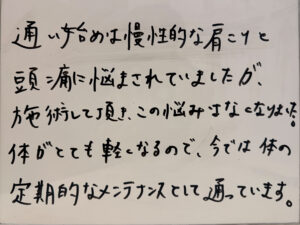 通い始めは慢性的な肩こりと
頭痛に悩まされていましたが、
施術して頂き、この悩みはなくなりました。
体がとても軽くなるので、今では体の
定期的なメンテナンスとして通っています。